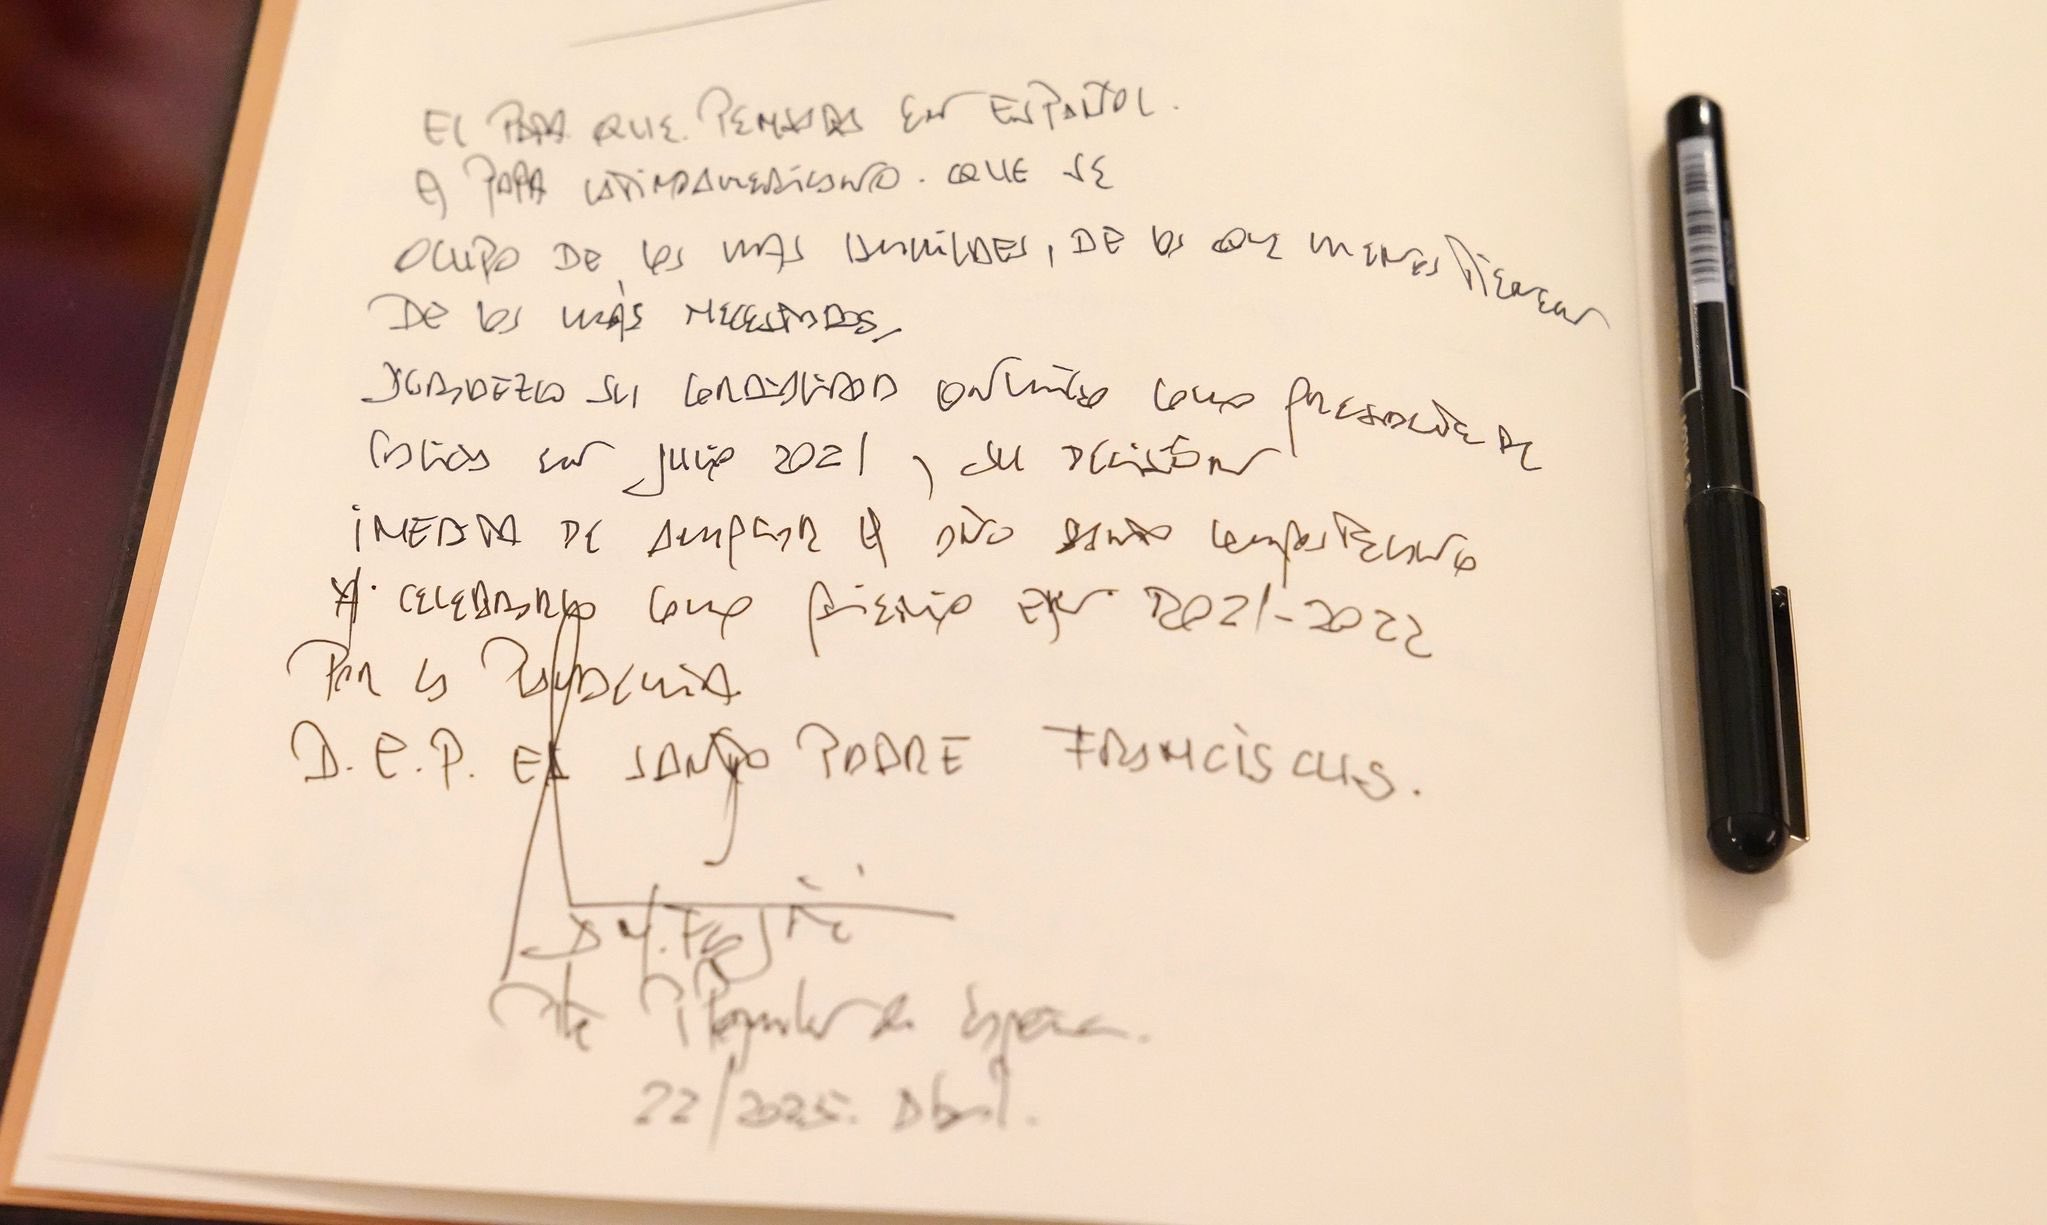 EL PAPA QUE PENSABA EN ESPAÑOL.
El PAPA LATINOAMERICANO. QUE SE
OCUPÓ DE LOS MÁS HUMILDES, DE LOS QUE MENOS TIENEN
DE LOS MÁS NECESITADOS,
AGRADEZCO SU CORDIALIDAD conmigo como PRESIDENTE DE
Galicia en julio 2021, SU DECISIÓN
INMEDIATA DE AMPLIAR El AÑO SANTO compostelano
Y CELEBRARLO como premio EN 2021-2022
POR LA PANDEMIA
D.E.P. EL SANTO PADRE FRANCISCUS.
A. N. Feijóo
Pte P. Popular de España.
22/2025. Abril.